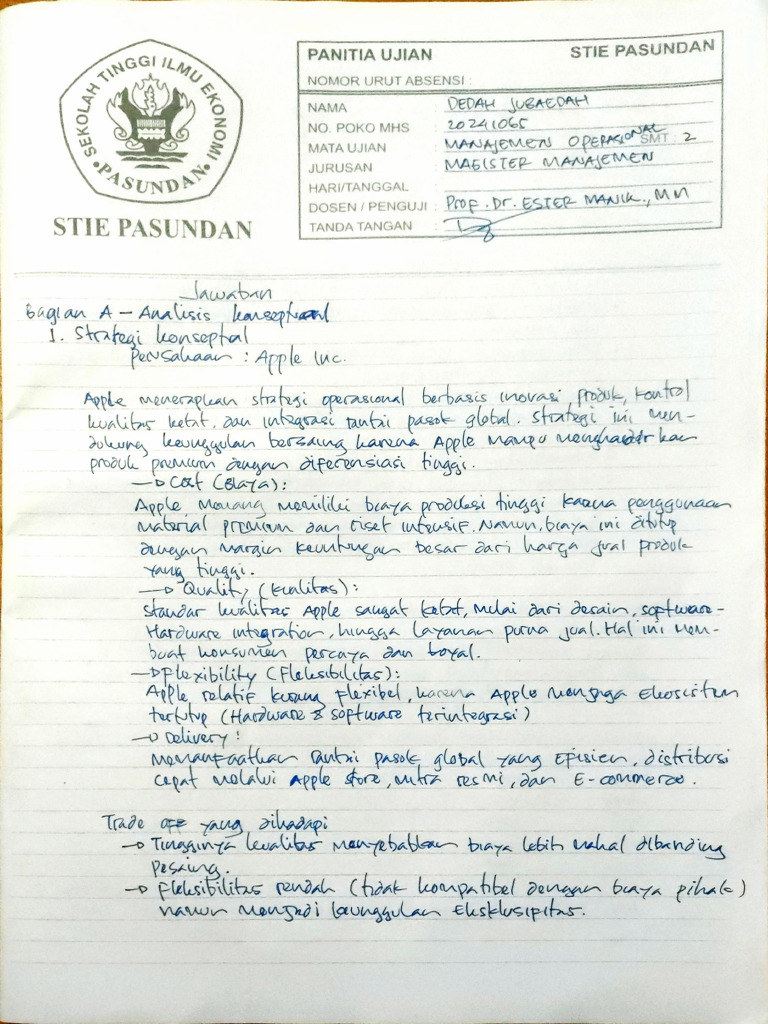 SEKOLAH TINGGI ILMU EKONOMI
PASUNDAN
STIE PASUNDAN
PANITIA UJIAN STIE PASUNDAN
NOMOR URUT ABSENSI :
NAMA : DEDAH JUBAEDAH
NO. POKO MHS : 20241065
MATA UJIAN : MANAJEMEN OPERASIONAL SMT : 2
JURUSAN : MAGISTER MANAJEMEN
HARI/TANGGAL :
DOSEN / PENGUJI : Prof. Dr. ESTER MANIK, MM
TANDA TANGAN :
Jawaban
Bagian A - Analisis konseptual
1. Strategi konseptal
Perusahaan : Apple Inc.
Apple menerapkan strategi operasional berbasis inovasi, produk, kontrol
kualitas ketat, dan integrasi rantai pasok global. Strategi ini men-
dukung keunggulan bersaing karena Apple mampu menghadirkan
produk premium dengan diferensiasi tinggi.
→ Cost (Biaya):
Apple, memang memiliki biaya produksi tinggi karena penggunaan
material premium dan riset intensif. Namun, biaya ini ditutup
dengan margin keuntungan besar dari harga jual produk
yang tinggi.
→ Quality (kualitas):
Standar kualitas Apple sangat ketat, mulai dari desain, software-
Hardware integration, hingga layanan purna jual. Hal ini mem-
buat konsumen percaya dan loyal.
→ Flexibility (Fleksibilitas):
Apple relatif kurang flexibel, karena Apple menjaga Ekosistem
tertutup (Hardware & software terintegrasi)
→ Delivery :
Memanfaatkan rantai pasok global yang Efisien, distribusi
cepat melalui Apple store, mitra resmi, dan E-commerce.
Trade off yang dihadapi
→ Tingginya kualitas menyebabkan biaya lebih mahal dibanding
pesaing.
→ Fleksibilitas rendah (tidak kompatibel dengan biaya pihak)
namun menjadi keunggulan Eksklusipitas.